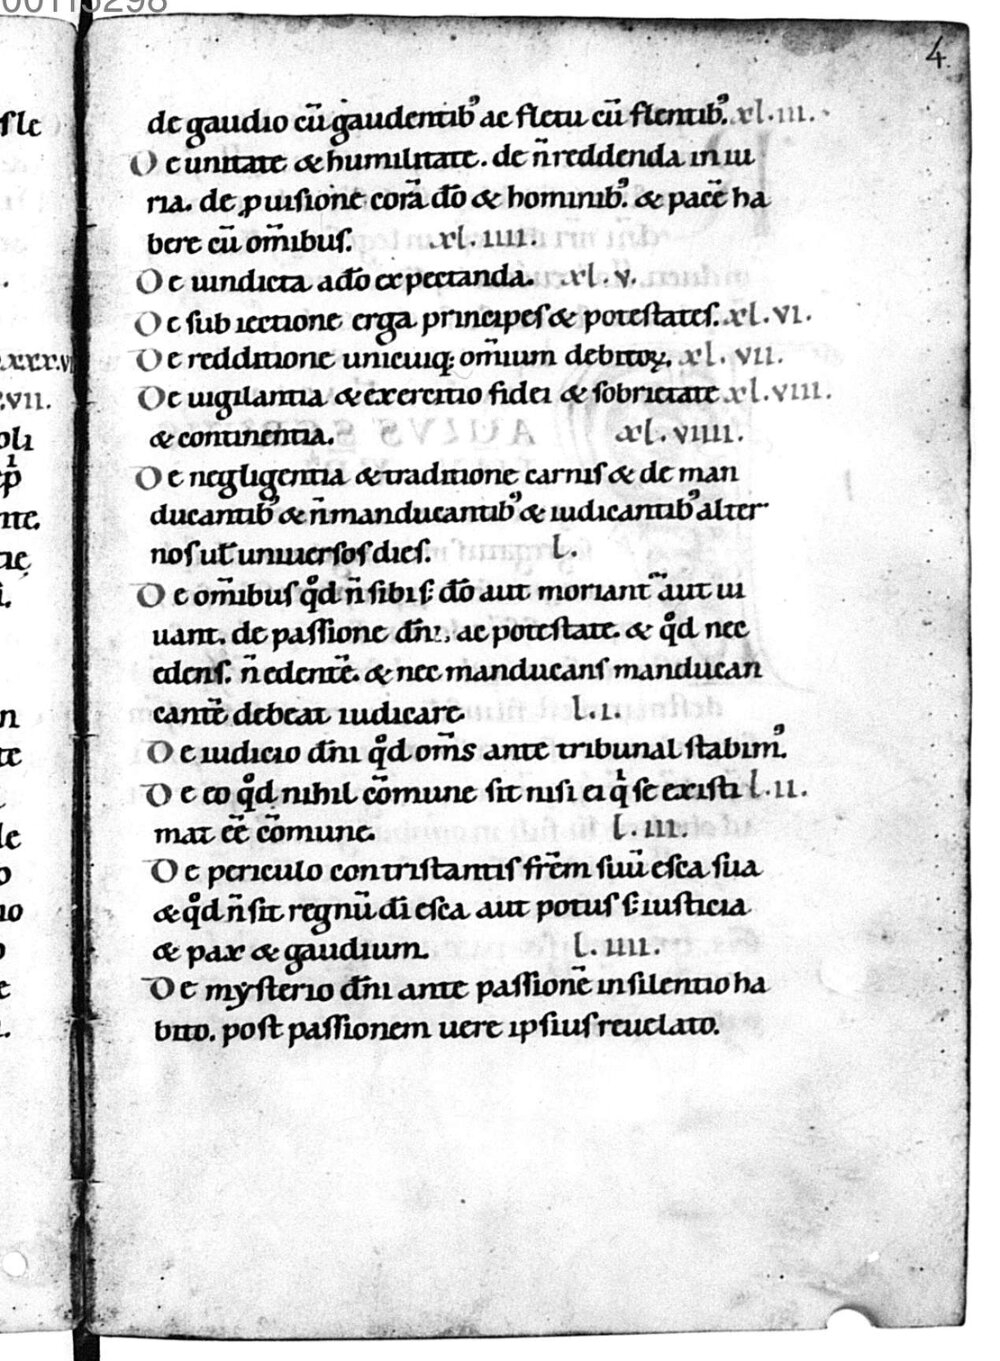 00115298
4
de gaudio cū gaudentib' ac fletu cū flentib'. xl.iii.
De unitate & humilitate. de n̄ reddenda iniu
ria. de ꝓuisione corā dō & hominib'. & pacē ha
bere cū om̄ibus. xl.iiii.
De uindicta a dō expectanda. xl.v.
De subiectione erga principes & potestates. xl.vi.
De redditione unicuiq; om̄ium debitoꝝ. xl.vii.
De uigilantia & exercitio fidei & sobrietate xl.viii.
& continentia. xl.viiii.
De negligentia & traditione carnis & de man
ducantib' & n̄ manducantib' & iudicantib' alter
nos ut̄ uniuersos dies. l.
De om̄ibus qd̊ n̄ sibi s; dō aut moriant̄ aut ui
uant. de passione dn̄i. ac potestate. & qd̊ nec
edens. n̄ edentē. & nec manducans manducan
cantē debeat iudicare. l.i.
De iudicio dn̄i qd̊ om̄s ante tribunal stabim'.
De eo qd̊ nihil cōmune sit nisi ei qⁱ se existi l.ii.
mat eē cōmune. l.iii.
De periculo contristantis fr̄em suū esca sua
& qd̊ n̄ sit regnū dī esca aut potus s; iusticia
& pax & gaudium. l.iiii.
De mysterio dn̄i ante passionē in silentio ha
bito. post passionem uere ipsius reuelato.